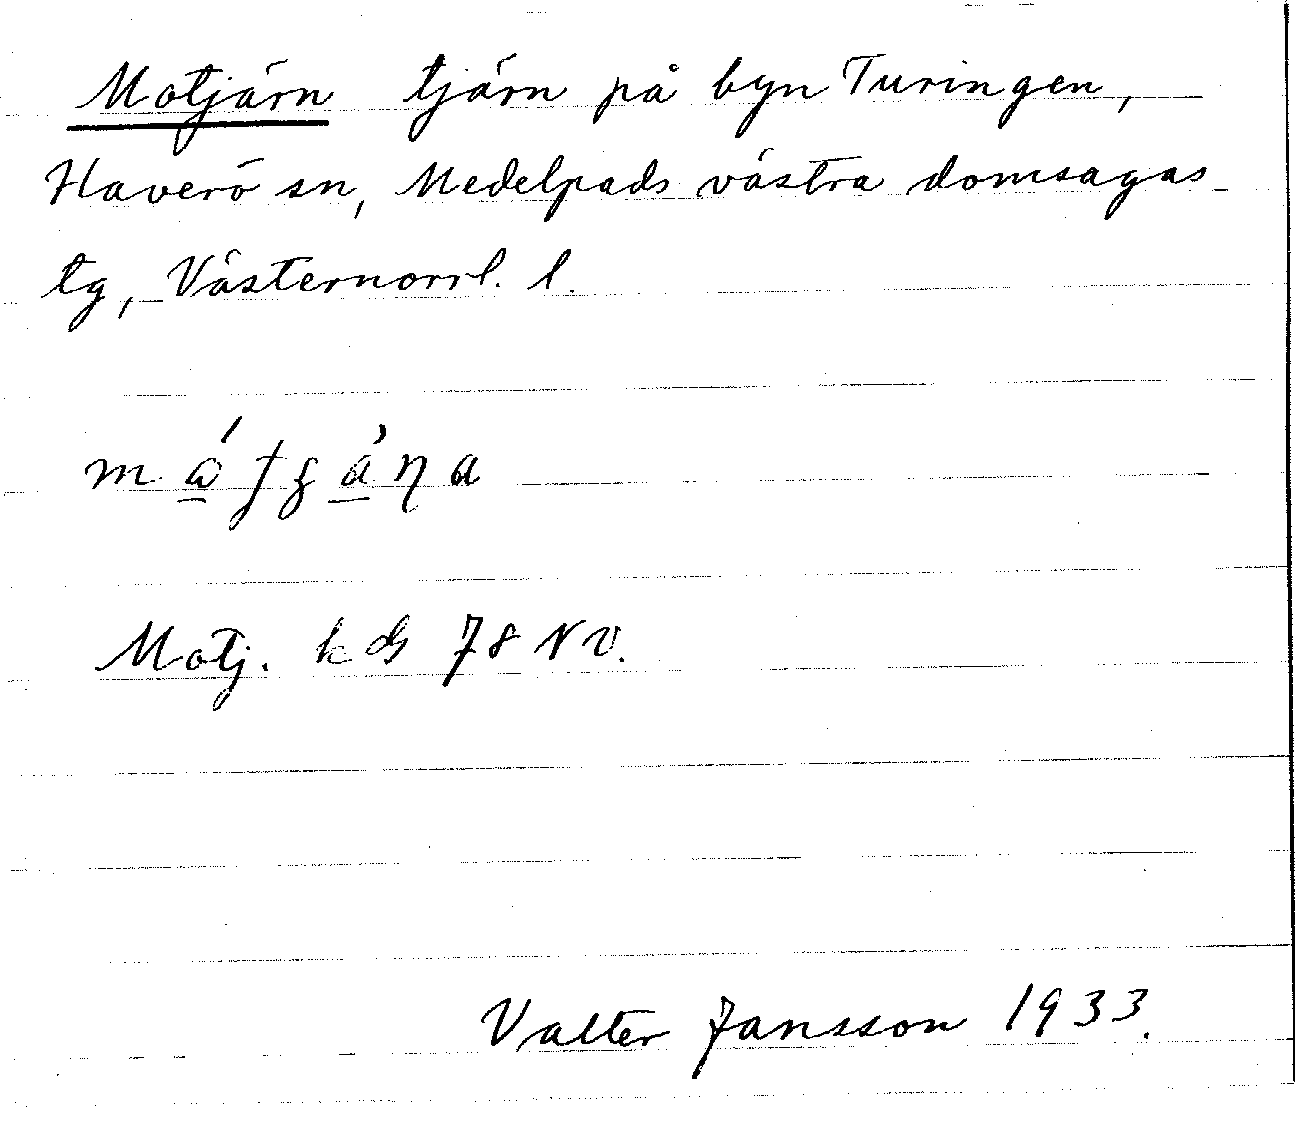 Motjärn tjärn på byn Turingen,
Haverö sn, Medelpads västra domsagas
tg, Västernorrl. l.
Motj. kds 78 NV.
Valter Jansson 1933.